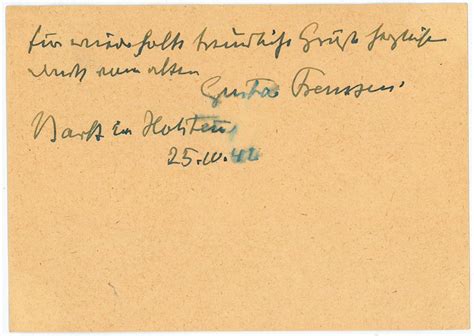 für wiederholte freundliche Grüße herzlichen
Dank vom alten
Gustav Frenssen.
Barlt in Holstein
25.10.42